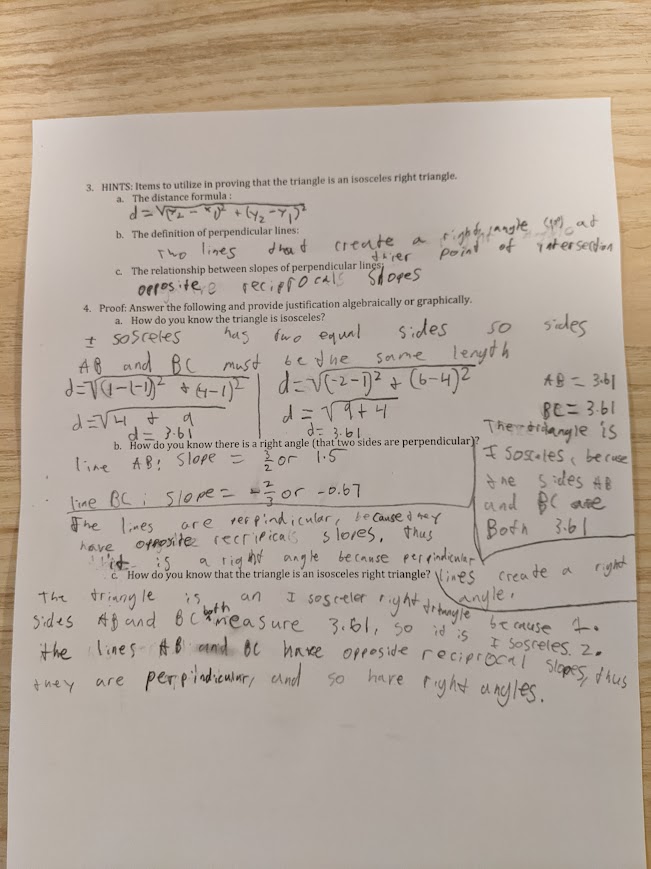 3. HINTS: Items to utilize in proving that the triangle is an isosceles right triangle.
a. The distance formula :
d = √(x₂ - x₁)² + (y₂ - y₁)²
b. The definition of perpendicular lines:
Two lines that create a right angle at
thier point of intersection
c. The relationship between slopes of perpendicular lines:
opposite reciprocals slopes
4. Proof: Answer the following and provide justification algebraically or graphically.
a. How do you know the triangle is isosceles?
I sosreles has two equal sides so sides
AB and BC must be the same length
d=√(1-(-1))² + (4-1)²
d=√4 + 9
d= 3.61
d=√(-2-1)² + (6-4)²
d = √9+4
d= 3.61
AB = 3.61
BC = 3.61
The triangle is
I soscales, becuse
the sides AB
and BC are
Both 3.61
b. How do you know there is a right angle (that two sides are perpendicular)?
line AB: Slope = 3/2 or 1.5
line BC: slope = -2/3 or -0.67
The lines are perpindicular, because they
have opposite recripicals slopes, thus
it is a right angle because perpindicular
lines create a right
angle.
c. How do you know that the triangle is an isosceles right triangle?
The triangle is an I sosceler right triangle because 1.
sides AB and BC both measure 3.61, so it is I sosreles. 2.
the lines AB and BC have opposide reciprocal slopes, thus
they are perpindicular, and so have right angles.